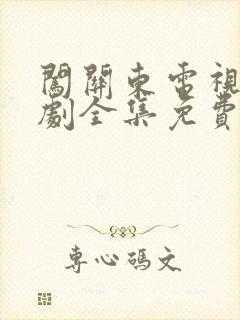 闖關東電視
劇全集免費
專心碼文